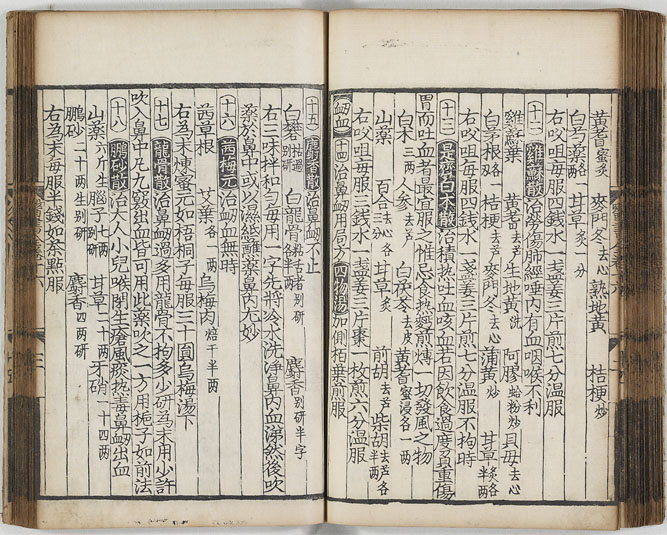 黃耆蜜炙 麥門冬去心 熟地黃 桔梗炒
白芍藥各二兩 甘草炙一分
右㕮咀每服四錢水一盞姜三片煎七分温服
十二 雞蘇散治勞傷肺經唾内有血咽喉不利
雞蘇葉 黃耆去芦 生地黃洗 阿膠蛤粉炒 貝母去心
白茅根各一兩 桔梗去芦 麥門冬去心 蒲黃炒 甘草炙各半兩
右㕮咀每服四錢水一盞姜三片煎七分温服不拘時
十三 是齋白朮散治積熱吐血咳血若因飲食過度負重傷
胃而吐血者最宜服之惟忌食熱麪煎煿一切發風之物
白朮二兩 人參去芦 白茯苓去皮 黃耆蜜浸各一兩
山藥 百合三分去心 甘草炙 前胡去芦 柴胡去芦各半兩
右㕮咀每服三錢水一盞姜三片棗一枚煎六分温服
衂血 十四 治鼻衂用局方四物湯加側栢葉煎服
十五 麝香散治鼻衂不止
白礬枯過別研 白龍骨粘舌者別研各半兩 麝香別研半字
右三味拌和勻每用一字先將冷水洗淨鼻内血涕然後吹
藥於鼻中或以濕紙蘸藥鼻内尤妙
十六 茜梅元治衂血無時
茜草根 艾葉各一兩 烏梅肉焙干半兩
右為末煉蜜元如梧桐子每服三十圓烏梅湯下
十七 龍骨散治鼻衂過多用龍骨不拘多少研為末用少許
吹入鼻中凡九竅出血皆可用此藥吹之一方用梔子如前法
十八 鵬砂散治大人小兒喉閉生瘡風痰熱毒鼻衂出血
山藥六斤生 腦子七兩別研 甘草二十兩 牙硝一十四兩
鵬砂二十兩生別研 麝香四兩研
右為末每服半錢如茶點服